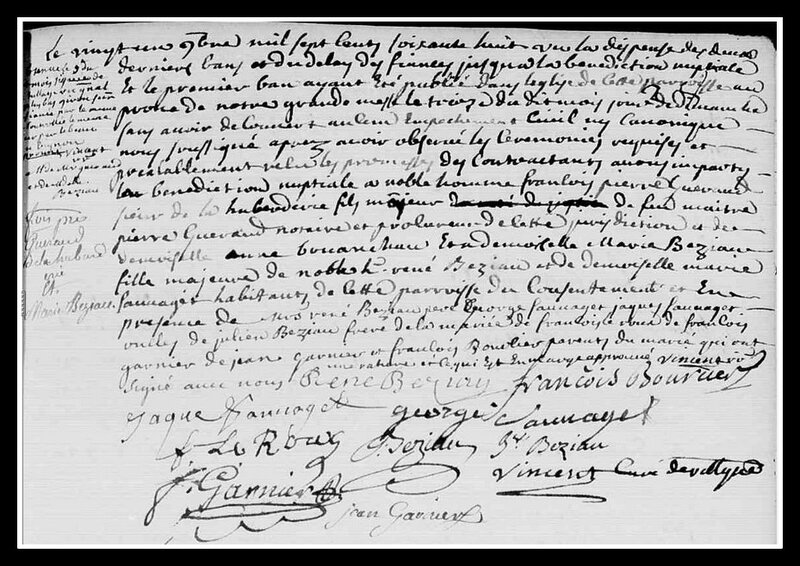 Le vingt un 9bre mil sept cents soixante huit vu la dispense des deux
derniers bans et du delay des fiancés jusqua la benediction nuptiale
Et le premier ban ayant Eté publié dans leglise de cette parroisse au
prone de notre grande messe le treize du dit mois jour de dimanche
sans avoir decouvert aucun Empechement Civil ny Canonique
nous soussigné apres avoir observé les Ceremonies requises et
prealablement les promesses des Contractants avons imparty
la benediction nuptiale a noble homme francois pierre Gueraud
sieur de la huberderie fils majeur de feu maitre
pierre Gueraud notaire et procureur de cette jurisdiction et de
demoiselle anne bouanchau Et demoiselle Marie Beziau
fille majeure de noble h. rené Beziau et de demoiselle marie
Sauvaget habitants de cette parroisse du Consentement et En
presence de rené Beziau pere George Sauvaget jaques Sauvaget
oncles de julien Beziau frere de la mariée de francoise de francois
garnier de jean garnier et francois Bourlier parents du marié qui ont
rature et ce qui Est En marge approuvé Vincent
signé avec nous René Beziau françois Bourlier
Jaque Sauvaget george Sauvaget
f Le Roux Beziau Beziau
f. Garnier Vincent Curé
jean Garnier
francois
Gueraud
Et
Marie Beziau